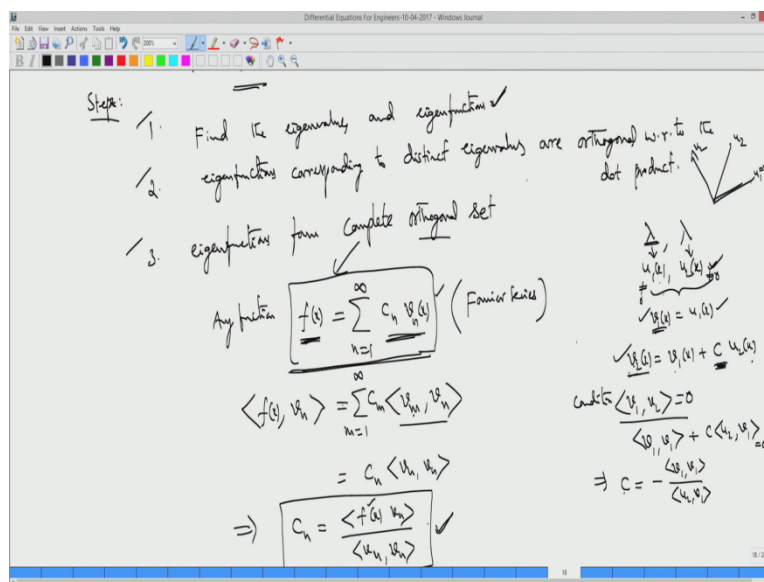 Differential Equations For Engineers-10-04-2017 - Windows Journal
File Edit View Insert Actions Tools Help
200%
B I
Steps:
1. Find the eigenvalues and eigenfunctions ✓
2. eigenfunctions corresponding to distinct eigenvalues are orthogonal w.r.to the
dot product.
u₂
3. eigenfunctions form complete orthogonal set
Any function f(x) = ∑_{n=1}^{∞} Cₙ vₙ(x) ✓ (Fourier series)
⟨f(x), vₙ⟩ = ∑_{m=1}^{∞} Cₘ ⟨vₘ, vₙ⟩
= Cₙ ⟨vₙ, vₙ⟩
⇒ Cₙ = ⟨f(x) vₙ⟩ / ⟨vₙ, vₙ⟩ ✓
λ, λ
u₁(x), u₂(x)
✓ v₁(x) = u₁(x) ✓
✓ v₂(x) = v₁(x) + C u₂(x)
⟨v₁, v₂⟩ = 0
⟨v₁, v₁⟩ + C⟨u₂, v₁⟩ = 0
⇒ C = - ⟨v₁, v₁⟩ / ⟨u₂, v₁⟩
18